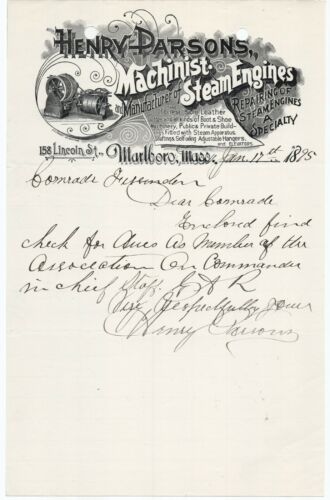 HENRY PARSONS,
Machinist.
and Manufacturer of Steam Engines
Leather
kinds of Boot & Shoe
Machinery, Public & Private Build-
ings Fitted with Steam Apparatus.
Shaftings, Self-oiling Adjustable Hangers,
and ELEVATORS.
REPAIRING OF
STEAM ENGINES
A
SPECIALTY
158 LINCOLN ST.,
Marlboro, Mass., Jan 17th 1895
Comrade Fessenden
Dear Comrade
Enclosed find
check for dues as Member of the
Association On Commander
in chief Staff. G A R
Very Respectfully Yours
Henry Parsons